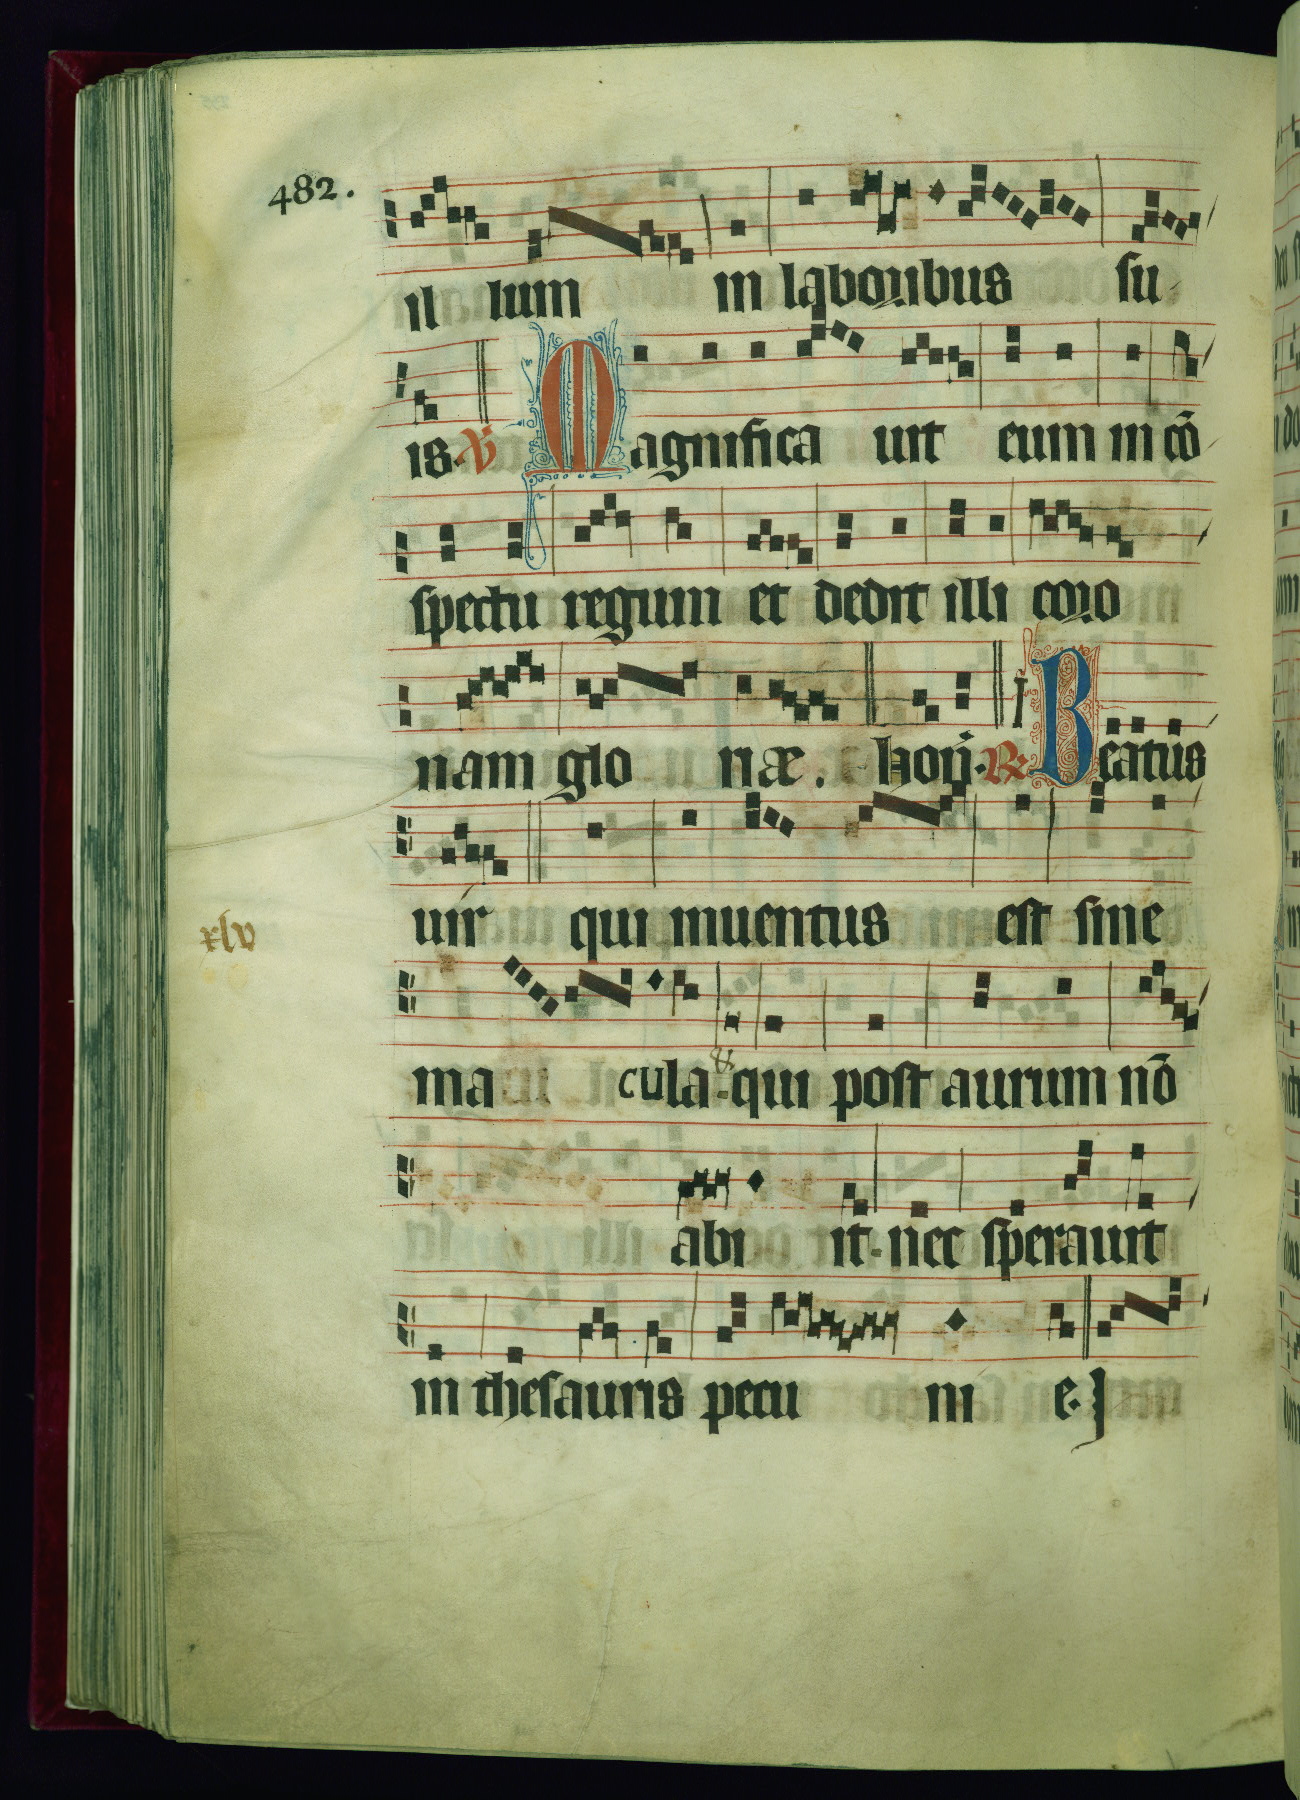 482.
il lum in laboribus su
is. ℣ Magnifica uit eum in cō
spectu regum et dedit illi coro
nam glo riæ. honō. ℟ Beatus
uir qui inuentus est sine
xlv
ma cula. & qui post aurum nō
abi it. nec sperauit
in thesauris pecu ni e.